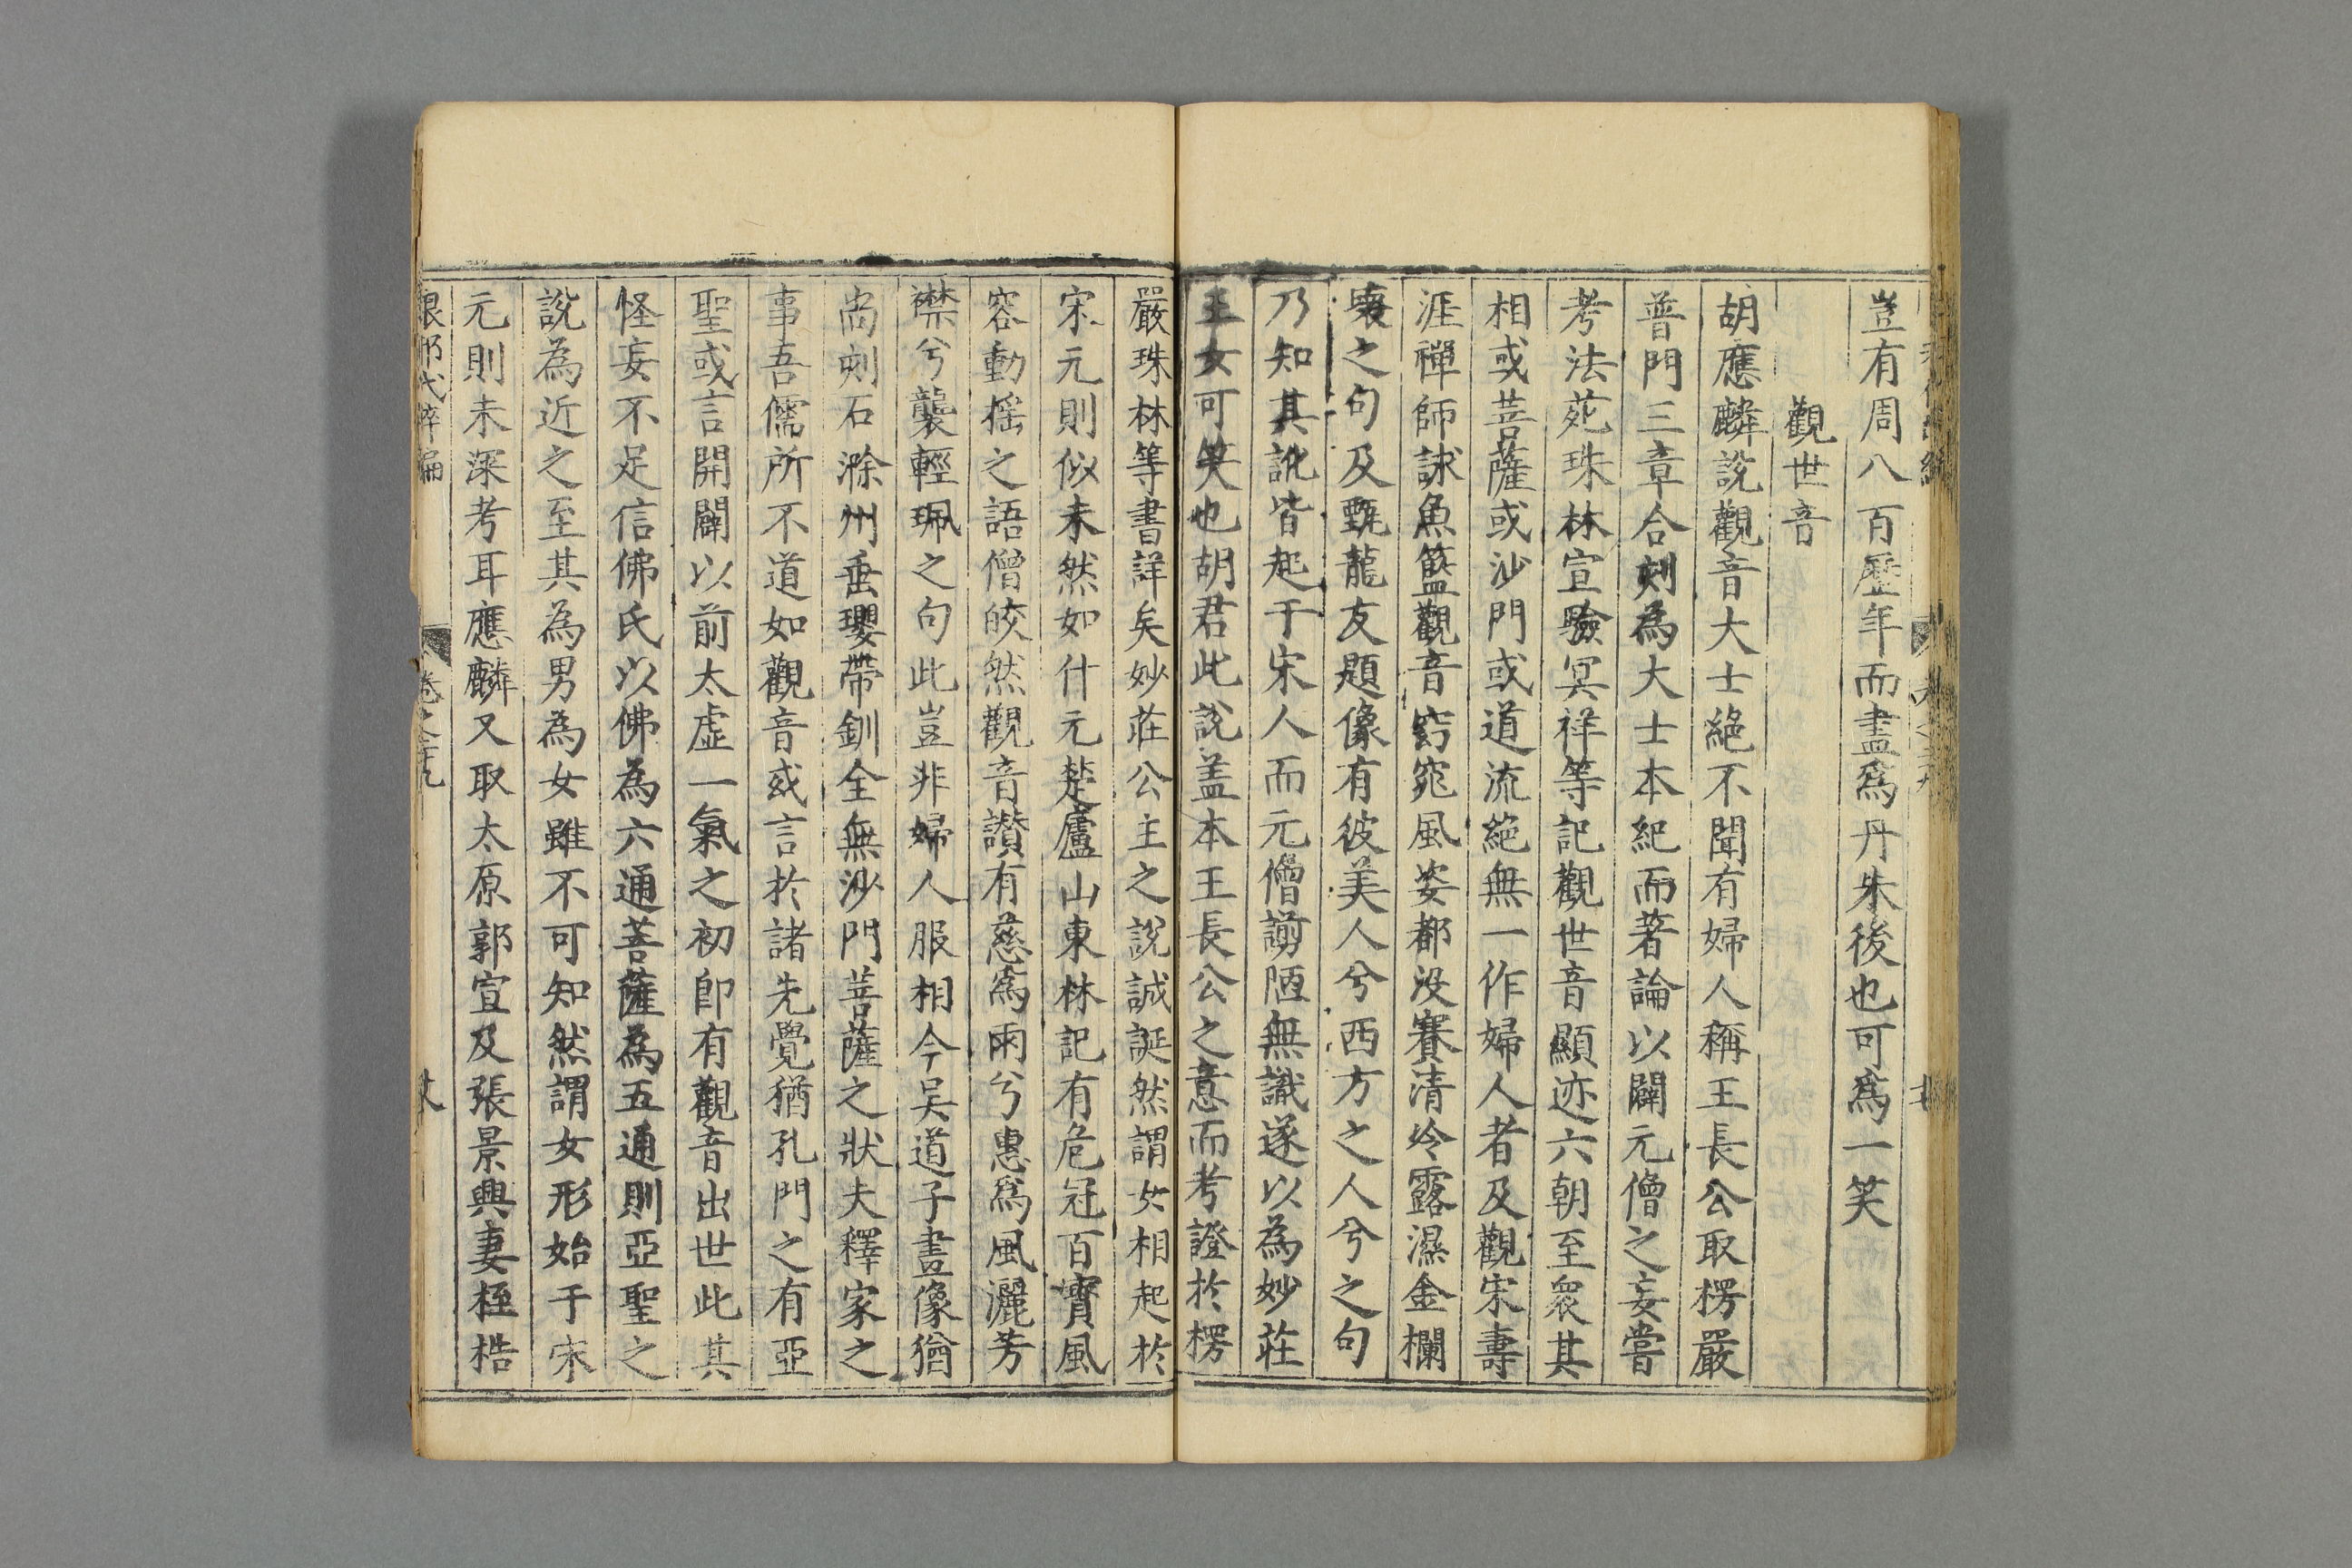 豈有周八百歷年而盡爲丹朱後也可爲一笑
觀世音
胡應麟說觀音大士絕不聞有婦人稱王長公取楞嚴
普門三章合刻為大士本紀而著論以闢元僧之妄嘗
考法苑珠林宣驗冥祥等記觀世音顯迹六朝至衆其
相或菩薩或沙門或道流絕無一作婦人者及觀宋壽
涯禪師詠魚籃觀音窈窕風姿都没賽清冷露濕金襴
壞之句及甄龍友題像有彼美人兮西方之人兮之句
乃知其訛皆起于宋人而元僧謭陋無識遂以為妙莊
王女可笑也胡君此說盖本王長公之意而考證於楞
嚴珠林等書詳矣妙莊公主之說誠誕然謂女相起於
宋元則似未然如什元楚廬山東林記有危冠百寶風
容動搖之語僧皎然觀音讚有慈爲雨兮惠爲風灑芳
襟兮襲輕珮之句此豈非婦人服相今吴道子畫像猶
尚刻石滁州垂瓔帶釧全無沙門菩薩之狀夫釋家之
事吾儒所不道如觀音或言於諸先覺猶孔門之有亞
聖或言開闢以前太虛一氣之初即有觀音出世此其
怪妄不足信佛氏以佛為六通菩薩為五通則亞聖之
說為近之至其為男為女雖不可知然謂女形始于宋
元則未深考耳應麟又取太原郭宣及張景興妻桎梏
琅邪代醉編 卷之二十九